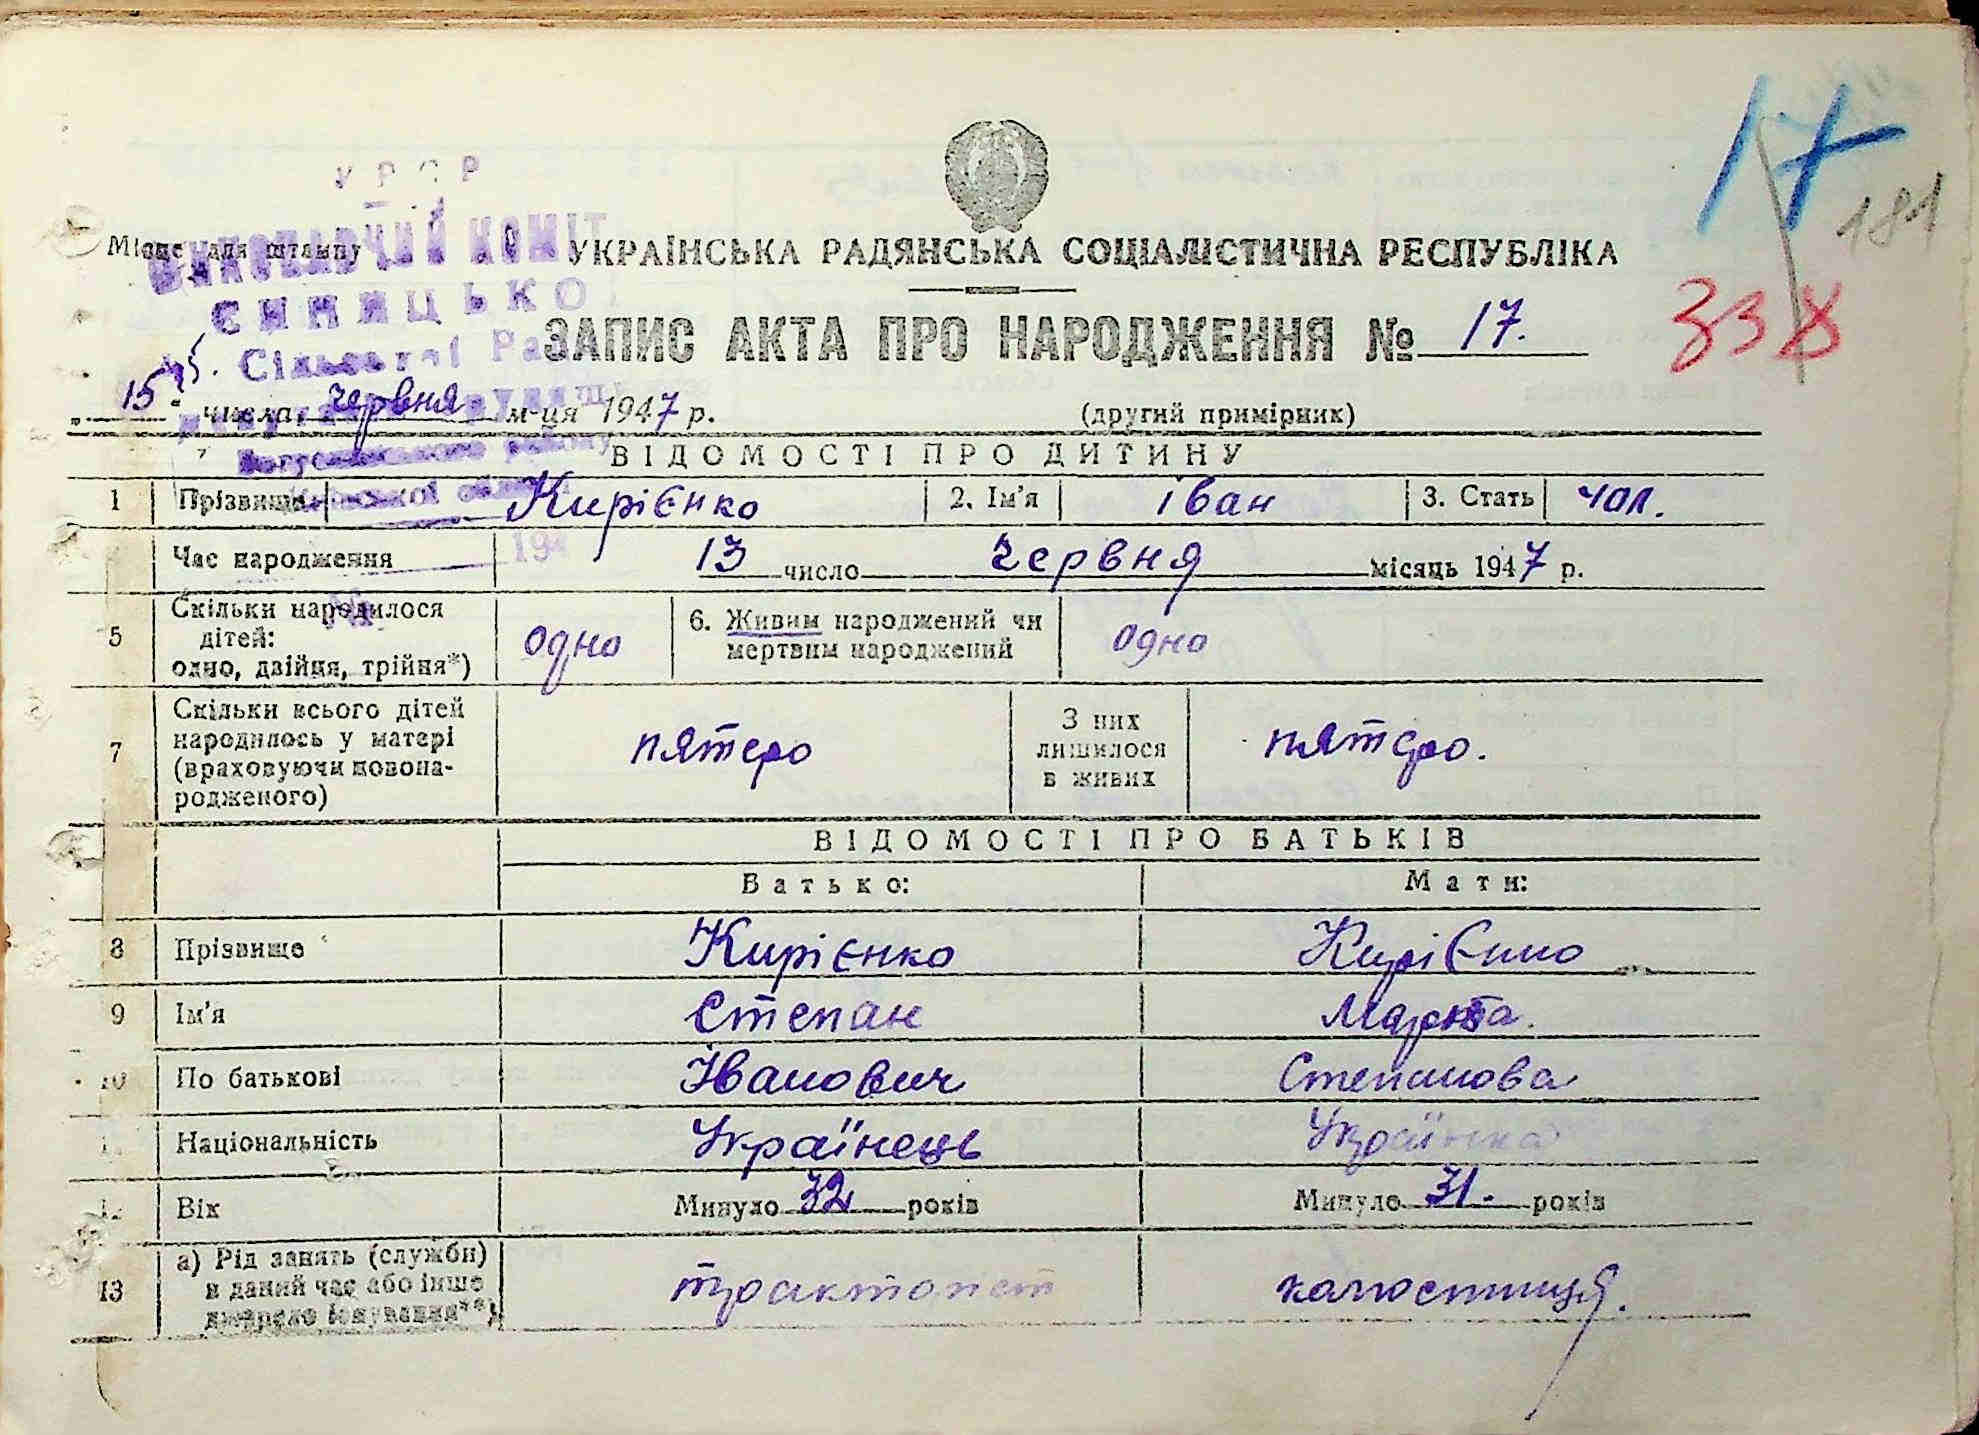 17
181
338
УРСР
ВИКОНАВЧИЙ КОМІТ
Місце для штампу
УКРАЇНСЬКА РАДЯНСЬКА СОЦІАЛІСТИЧНА РЕСПУБЛІКА
ЄНИЦЬКО
Сільської Ра
ЗАПИС АКТА ПРО НАРОДЖЕННЯ № 17.
„15" числа червня м-ця 1947 р.
(другий примірник)
району
ВІДОМОСТІ ПРО ДИТИНУ
1 Прізвище Кирієнко 2. Ім'я Іван 3. Стать чол.
Час народження 13 число червня місяць 1947 р.
194
5 Скільки народилося дітей: одно, двійня, трійня*) одно 6. Живим народжений чи мертвим народжений одно
7 Скільки всього дітей народилось у матері (враховуючи новонародженого) пятеро З них лишилося в живих пятеро.
ВІДОМОСТІ ПРО БАТЬКІВ
Батько: Мати:
8 Прізвище Кирієнко Кирієнко
9 Ім'я Степан Марта.
10 По батькові Іванович Степанова
Національність Українець Українка
Вік Минуло 32 років Минуло 31. років
13 а) Рід занять (служби) в даний час або інше джерело існування**) тракторист колгоспниця.